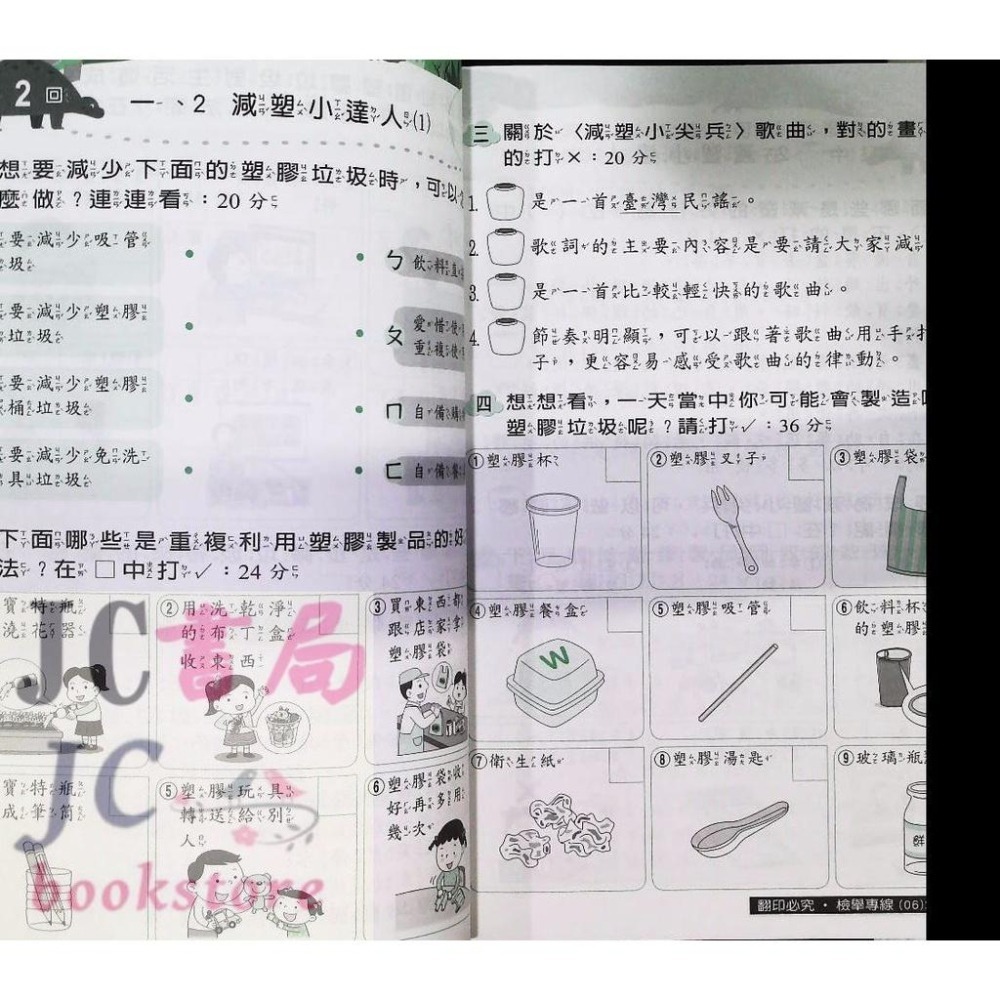 2 回
一、2 減塑小達人(1)
想要減少下面的塑膠垃圾時，可以
麼做？連連看：20 分
要減少吸管
圾
ㄅ 飲料直
要減少塑膠
垃圾
ㄆ 愛惜使
重複使
要減少塑膠
桶垃圾
ㄇ 自備購
要減少免洗
具垃圾
ㄈ 自備餐
下面哪些是重複利用塑膠製品的好
法？在□中打✓：24 分
寶特瓶
澆花器
②用洗乾淨
的布丁盒
收東西
③買東西都
跟店家拿
塑膠袋
寶特瓶
成筆筒
⑤塑膠玩具
轉送給別
人
⑥塑膠袋收
好再多用
幾次
JC書局
JC
bookstore
三 關於〈減塑小尖兵〉歌曲，對的畫
的打×：20 分
1. 是一首臺灣民謠。
2. 歌詞的主要內容是要請大家減
3. 是一首比較輕快的歌曲。
4. 節奏明顯，可以跟著歌曲用手打
子，更容易感受歌曲的律動。
四 想想看，一天當中你可能會製造
塑膠垃圾呢？請打✓：36 分
①塑膠杯
②塑膠叉子
③塑膠袋
④塑膠餐盒
W
⑤塑膠吸管
⑥飲料杯
的塑膠
⑦衛生紙
⑧塑膠湯匙
⑨玻璃瓶
鮮
翻印必究・檢舉專線 (06)